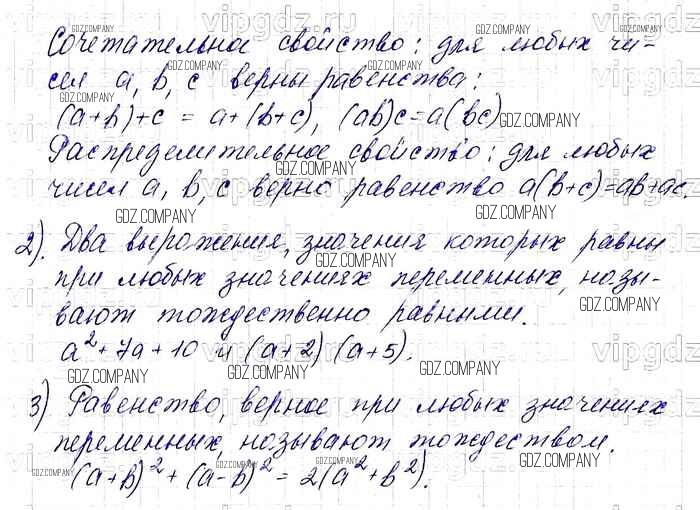 Сочетательное свойство: для любых чи-
сел a, b, c верны равенства:
(a+b)+c = a+(b+c), (ab)c=a(bc)
Распределительное свойство: для любых
чисел a, b, c верно равенство a(b+c)=ab+ac.
2). Два выражения, значения которых равны
при любых значениях переменных, назы-
вают тождественно равными.
a²+7a+10 и (a+2)(a+5).
3) Равенство, верное при любых значениях
переменных, называют тождеством.
(a+b)²+(a-b)²=2(a²+b²).